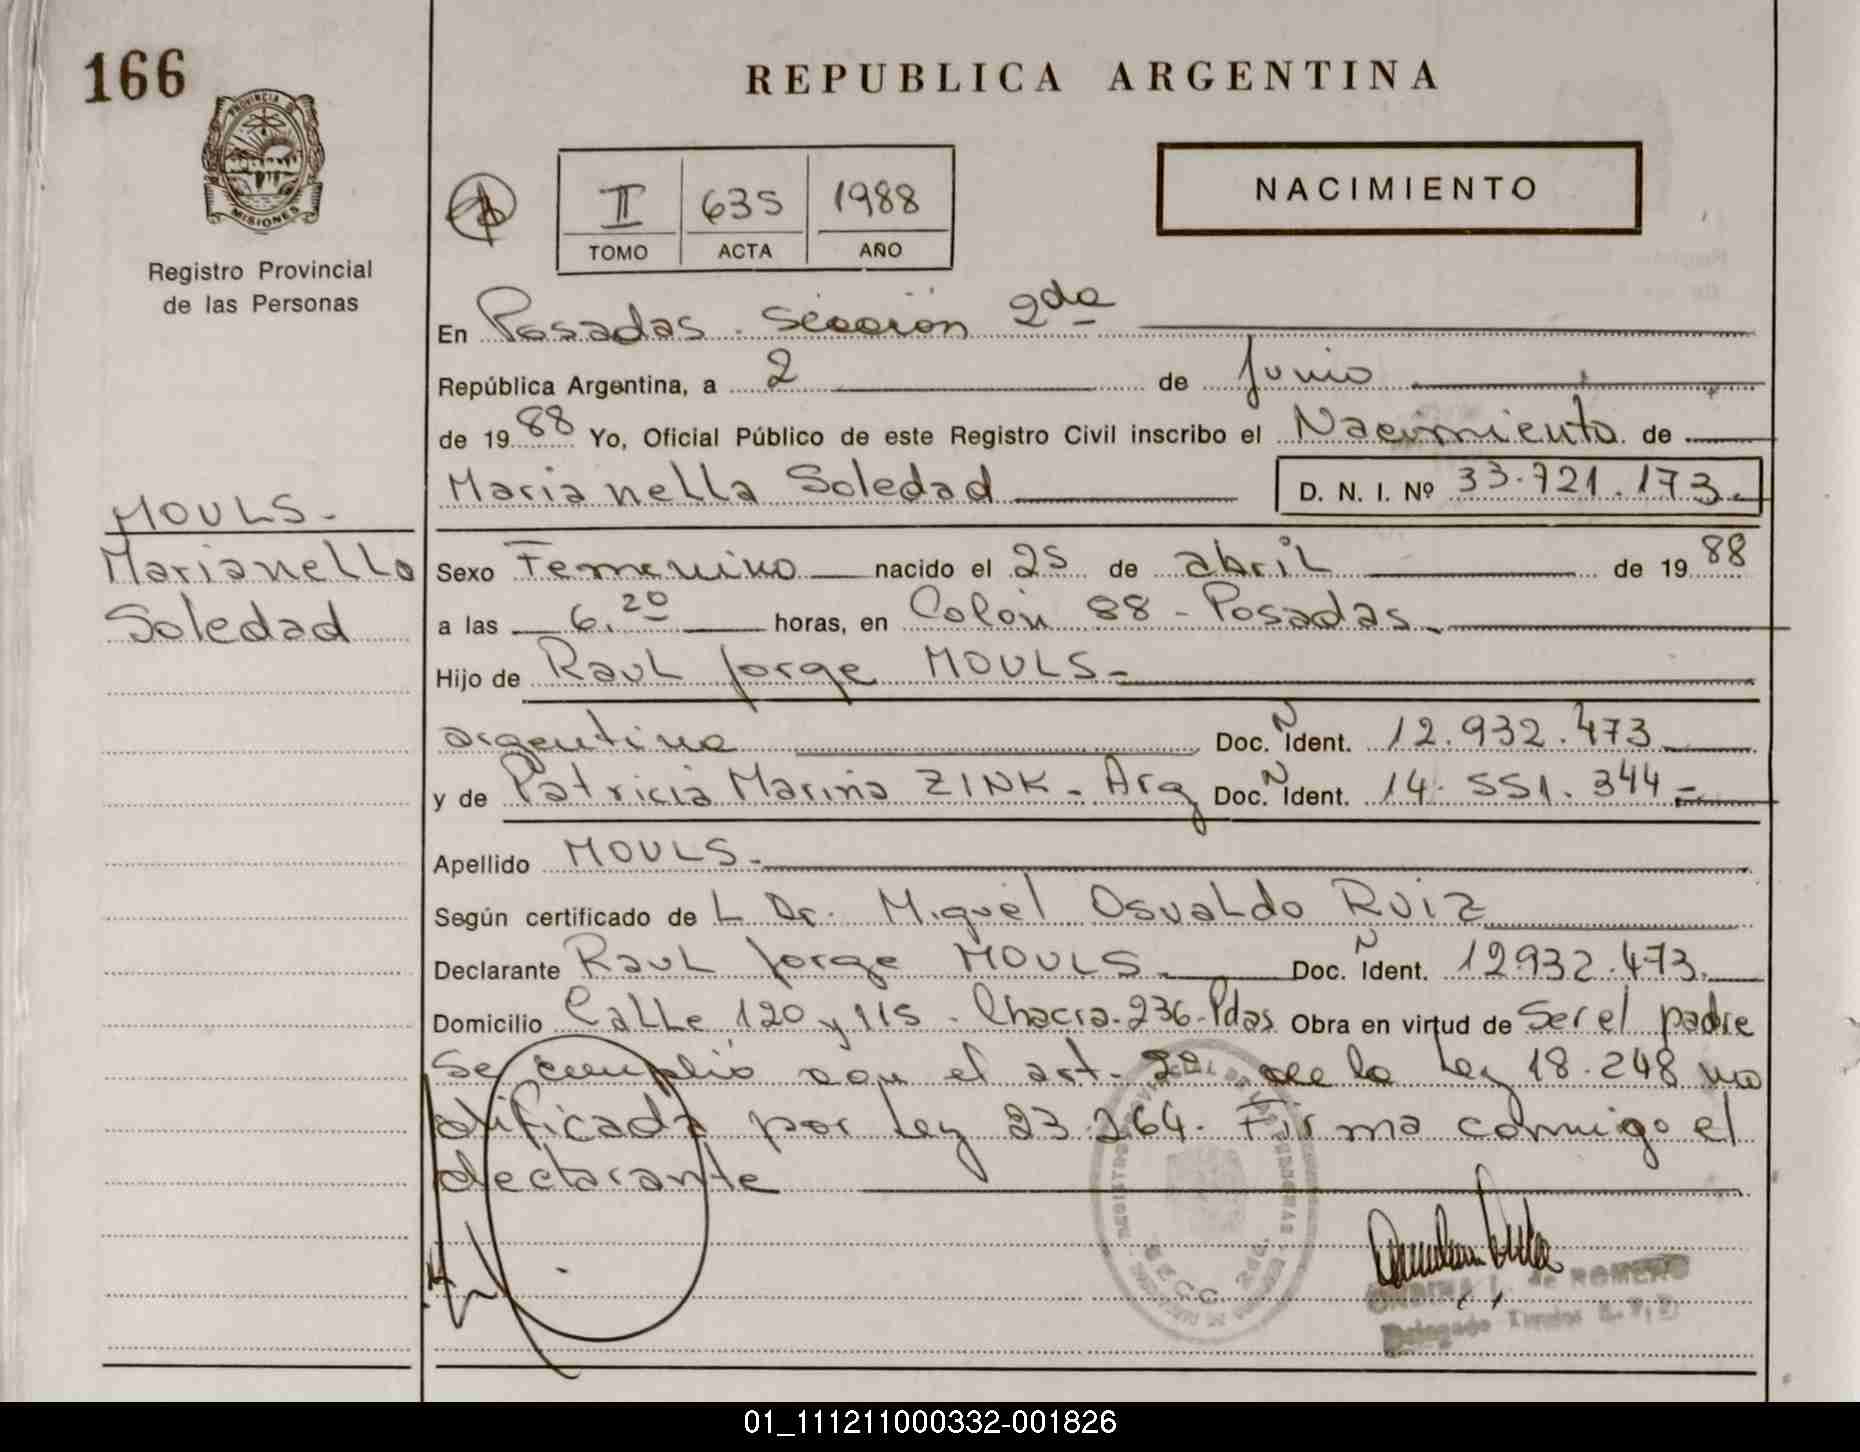 166
REPUBLICA ARGENTINA
PROVINCIA DE
MISIONES
Registro Provincial
de las Personas
II 635 1988
TOMO ACTA AÑO
NACIMIENTO
En Posadas. Sección 2da
República Argentina, a 2 de Junio
de 1988 Yo, Oficial Público de este Registro Civil inscribo el Nacimiento de
Marianella Soledad D. N. I. Nº 33.721.173.
MOULS.
Marianella
Soledad
Sexo Femenino nacido el 25 de abril de 1988
a las 6.20 horas, en Colón 88 - Posadas.
Hijo de Raul Jorge MOULS.
argentino Doc. Ñ Ident. 12.932.473
y de Patricia Marina ZINK. Arg Doc. Ñ Ident. 14.551.344
Apellido MOULS.
Según certificado de L Dr. Miguel Osvaldo Ruiz
Declarante Raul Jorge MOULS. Doc. Ñ Ident. 12932.473.
Domicilio Calle 120 y 115 - Chacra. 236. Pdas. Obra en virtud de Ser el padre
Se cumplió con el art. 2º de la Ley 18.248 mo
dificada por Ley 23.264. Firma conmigo el
declarante
SECC. 2da.
de ROMERO
01_111211000332-001826